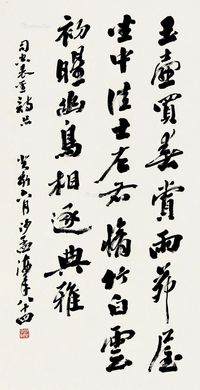 玉壶買春賞雨茆屋
坐中佳士左右脩竹白雲
初晴幽鳥相逐典雅
司空表聖詩品
癸亥六月沙孟海年八十四